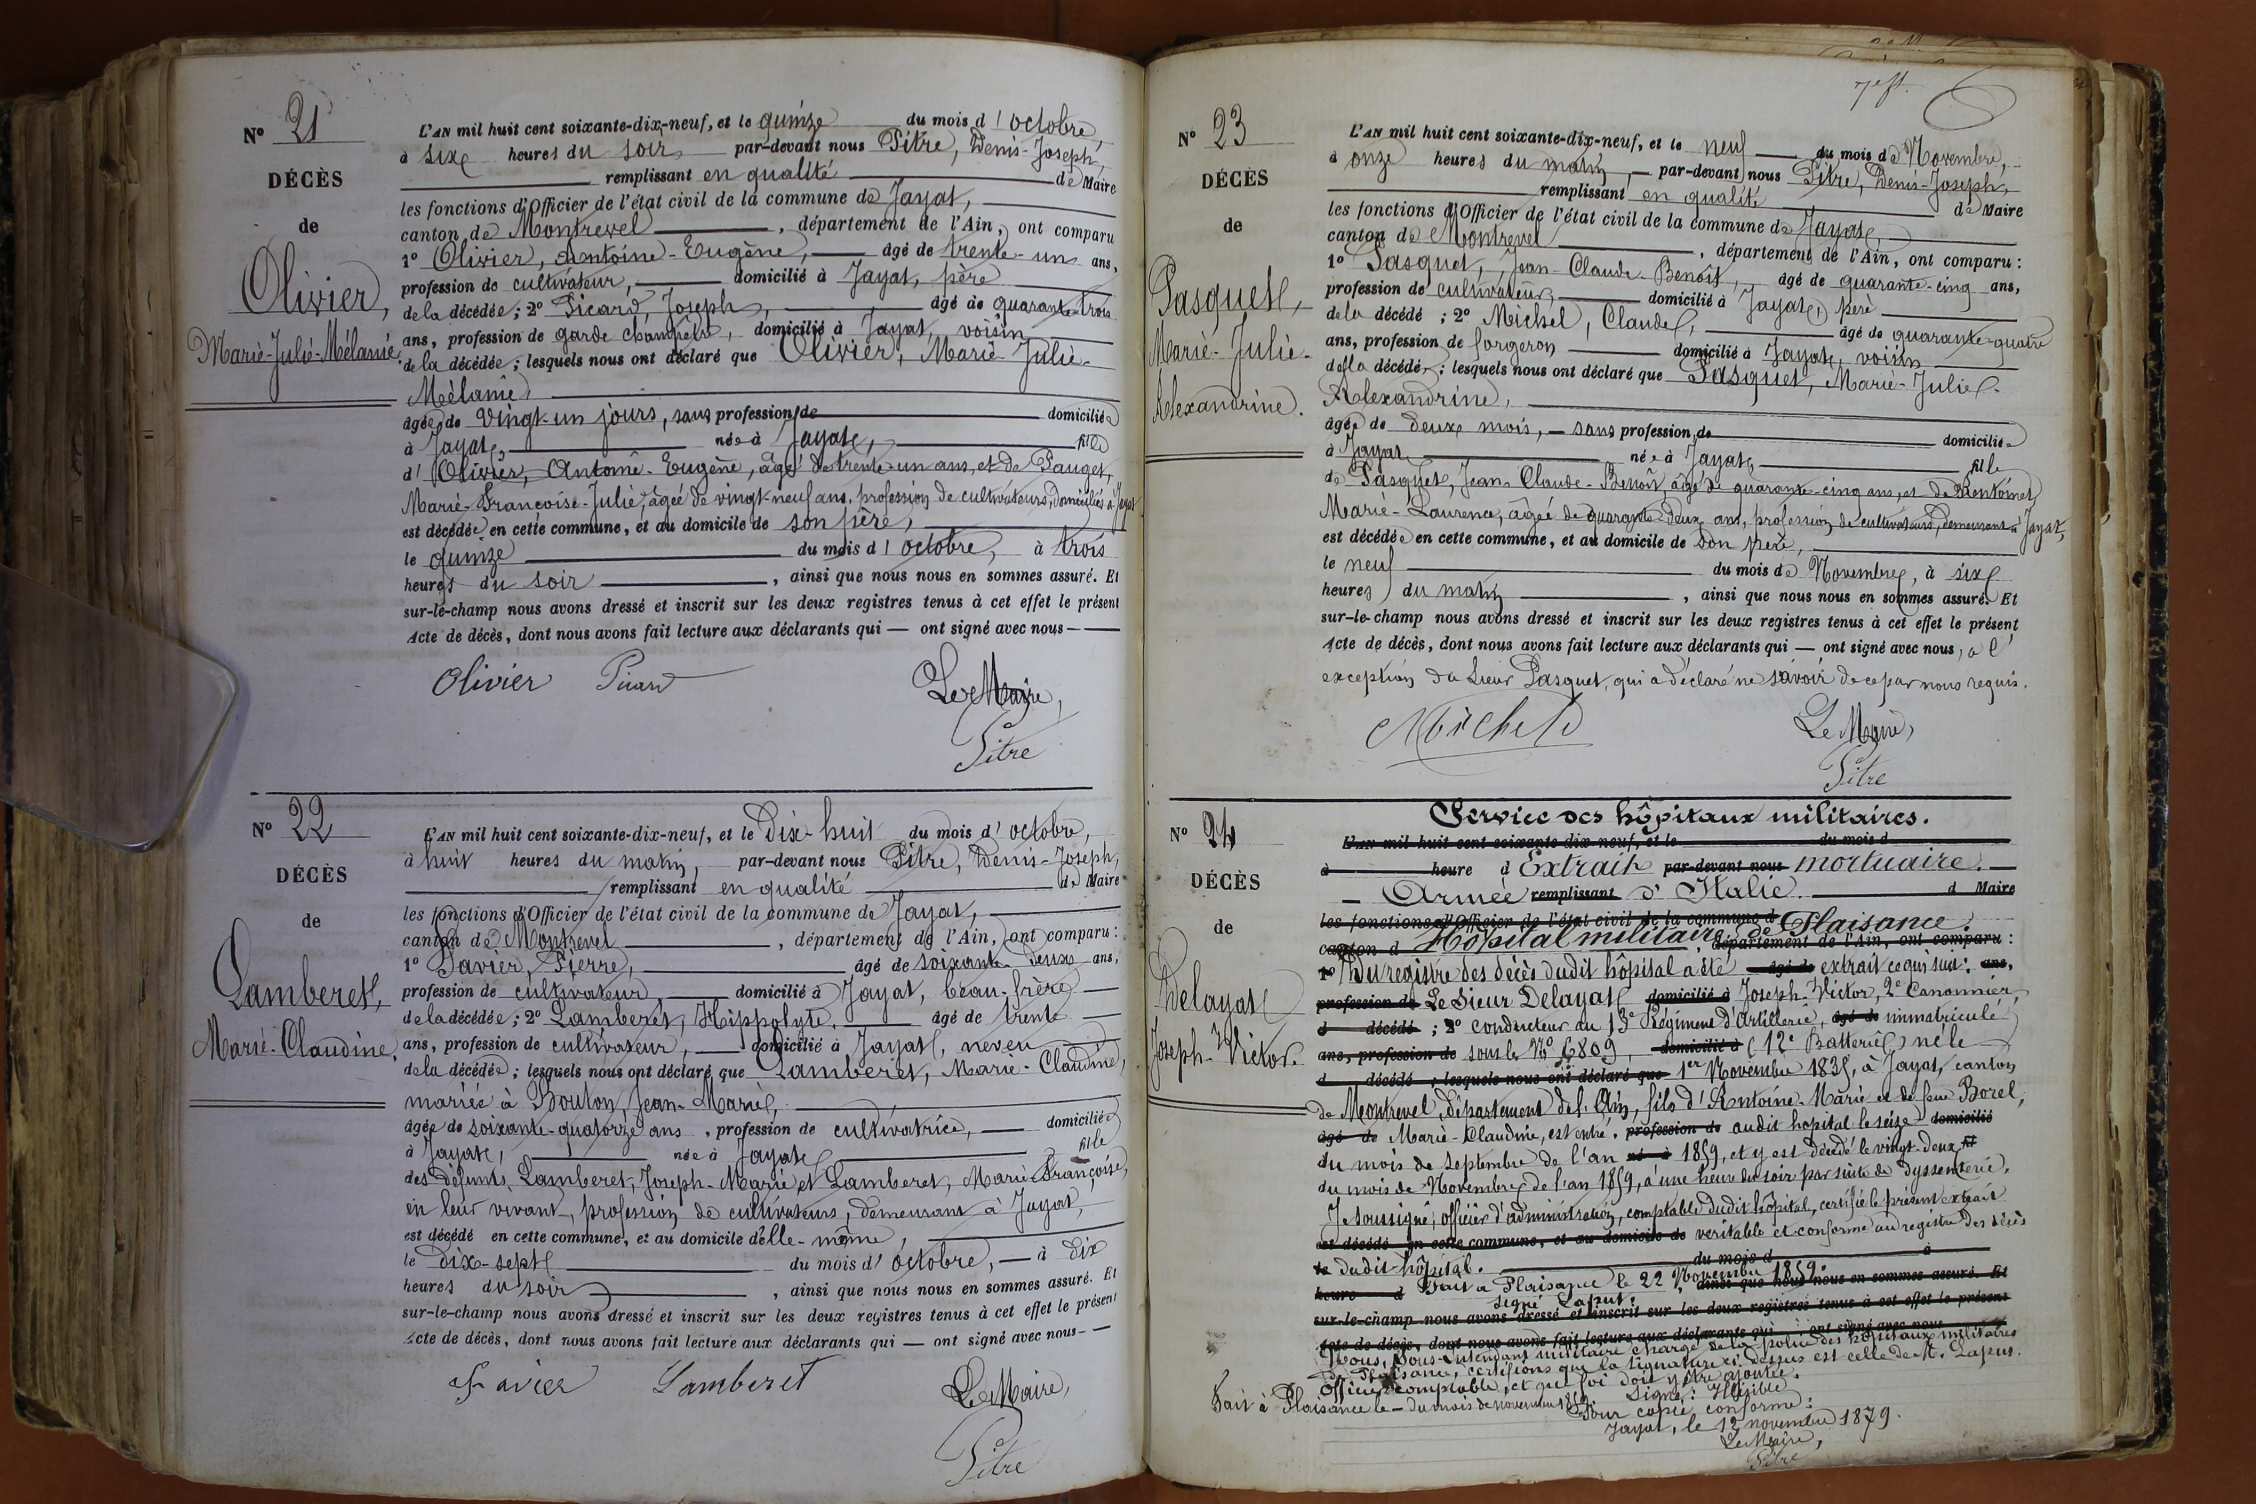 N° 21
DÉCÈS
de
Olivier,
Marie-Julie-Mélanie.
L'AN mil huit cent soixante-dix-neuf, et le quinze du mois d'octobre,
à six heures du soir par-devant nous Pitre, Denis-Joseph,
remplissant en qualité de Maire
les fonctions d'Officier de l'état civil de la commune de Jayat,
canton de Montrevel, département de l'Ain, ont comparu
1° Olivier, Antoine-Eugène, âgé de trente-un ans,
profession de cultivateur, domicilié à Jayat, père
de la décédée ; 2° Picard, Joseph, âgé de quarante-trois
ans, profession de garde champêtre, domicilié à Jayat, voisin
de la décédée ; lesquels nous ont déclaré que Olivier, Marie-Julie-
Mélanie
âgée de vingt-un jours, sans profession de domiciliée
à Jayat, née à Jayat, fille
d'Olivier, Antoine-Eugène, âgé de trente-un ans, et de Pauget,
Marie-Françoise-Julie, âgée de vingt-neuf ans, profession de cultivateurs, domiciliés à Jayat
est décédée en cette commune, et au domicile de son père,
le quinze du mois d'octobre, à trois
heures du soir, ainsi que nous nous en sommes assuré. Et
sur-le-champ nous avons dressé et inscrit sur les deux registres tenus à cet effet le présent
Acte de décès, dont nous avons fait lecture aux déclarants qui — ont signé avec nous —
Olivier Picard Le Maire,
Pitre
N° 22
DÉCÈS
de
Lamberet,
Marie-Claudine.
L'AN mil huit cent soixante-dix-neuf, et le Dix-huit du mois d'octobre,
à huit heures du matin, par-devant nous Pitre, Denis-Joseph,
remplissant en qualité de Maire
les fonctions d'Officier de l'état civil de la commune de Jayat,
canton de Montrevel, département de l'Ain, ont comparu :
1° Savier, Pierre, âgé de soixante-deux ans,
profession de cultivateur domicilié à Jayat, beau-frère
de la décédée ; 2° Lamberet, Hippolyte, âgé de trente
ans, profession de cultivateur, domicilié à Jayat, neveu
de la décédée ; lesquels nous ont déclaré que Lamberet, Marie-Claudine,
mariée à Bouton, Jean-Marie,
âgée de soixante-quatorze ans, profession de cultivatrice, domiciliée
à Jayat, née à Jayat fille
des défunts Lamberet, Joseph-Marie et Lamberet, Marie-Françoise,
en leur vivant, profession de cultivateurs, demeurant à Jayat,
est décédé en cette commune, et au domicile d'elle-même,
le Dix-sept du mois d'octobre, à dix
heures du soir, ainsi que nous nous en sommes assuré. Et
sur-le-champ nous avons dressé et inscrit sur les deux registres tenus à cet effet le présent
Acte de décès, dont nous avons fait lecture aux déclarants qui — ont signé avec nous —
Savier Lamberet Le Maire,
Pitre
N° 23
DÉCÈS
de
Pasquet,
Marie-Julie-
Alexandrine.
L'AN mil huit cent soixante-dix-neuf, et le neuf du mois de Novembre,
à onze heures du matin, par-devant nous Pitre, Denis-Joseph,
remplissant en qualité de Maire
les fonctions d'Officier de l'état civil de la commune de Jayat,
canton de Montrevel, département de l'Ain, ont comparu :
1° Pasquet, Jean-Claude-Benoît, âgé de quarante-cinq ans,
profession de cultivateur, domicilié à Jayat, père
de la décédé ; 2° Michel, Claude, âgé de quarante-quatre
ans, profession de forgeron domicilié à Jayat, voisin
de la décédé, ; lesquels nous ont déclaré que Pasquet, Marie-Julie-
Alexandrine,
âgée de deux mois, — sans profession de domiciliée
à Jayat née à Jayat, fille
de Pasquet, Jean-Claude-Benoît, âgé de quarante-cinq ans, et de
Marie-Laurence, âgée de quarante-deux ans, profession de cultivateurs, demeurant à Jayat,
est décédée en cette commune, et au domicile de son père,
le neuf du mois de Novembre, à six
heures du matin, ainsi que nous nous en sommes assuré. Et
sur-le-champ nous avons dressé et inscrit sur les deux registres tenus à cet effet le présent
Acte de décès, dont nous avons fait lecture aux déclarants qui — ont signé avec nous, à l'
exception du Sieur Pasquet, qui a déclaré ne savoir de ce par nous requis.
Michel Le Maire,
Pitre
N° 24
DÉCÈS
de
Delayat
Joseph-Victor.
Service des hôpitaux militaires.
L'AN mil huit cent soixante-dix-neuf, et le du mois d
à heure d Extrait par-devant nous mortuaire.
Armée remplissant d'Italie. d Maire
les fonctions d'Officier de l'état civil de la commune d
canton d Hôpital militaire de Plaisance. département de l'Ain, ont comparu :
1° Du registre des décès dudit hôpital a été âgé de extrait ce qui suit : ans,
profession de Le Sieur Delayat domicilié à Joseph-Victor, 2e Canonnier,
d décédé ; 2° conducteur au 13e Régiment d'Artillerie, âgé de immatriculé
ans, profession de sous le N° 6809, domicilié à (12e Batterie) né le
d décédé ; lesquels nous ont déclaré que 1er Novembre 1835, à Jayat, canton
de Montrevel, département de l'Ain, fils d'Antoine-Marie et de feue Borel,
âgé de Marie-Claudine, est entré, profession de audit hôpital le seize domicilié
du mois de septembre de l'an né à 1859, et y est décédé le vingt-deux fil
du mois de Novembre de l'an 1859, à une heure du soir par suite de dyssenterie.
Je soussigné, officier d'administration, comptable dudit hôpital, certifie le présent extrait
est décédé en cette commune, et au domicile de véritable et conforme au registre des décès
le dudit hôpital. du mois d à
heure d Fait à Plaisance le 22 Novembre 1859. ainsi que nous nous en sommes assuré. Et
signé Laput.
sur-le-champ nous avons dressé et inscrit sur les deux registres tenus à cet effet le présent
Acte de décès, dont nous avons fait lecture aux déclarants qui ont signé avec nous
Nous, Sous-Intendant militaire chargé de la police des hôpitaux militaires
de Plaisance, certifions que la signature ci-dessus est celle de M. Laput.
Officier comptable, et que foi doit y être ajoutée.
Fait à Plaisance le — du mois de novembre 1859. Signé : Illisible
Pour copie conforme :
Jayat, le 12 novembre 1879.
Le Maire,
Pitre